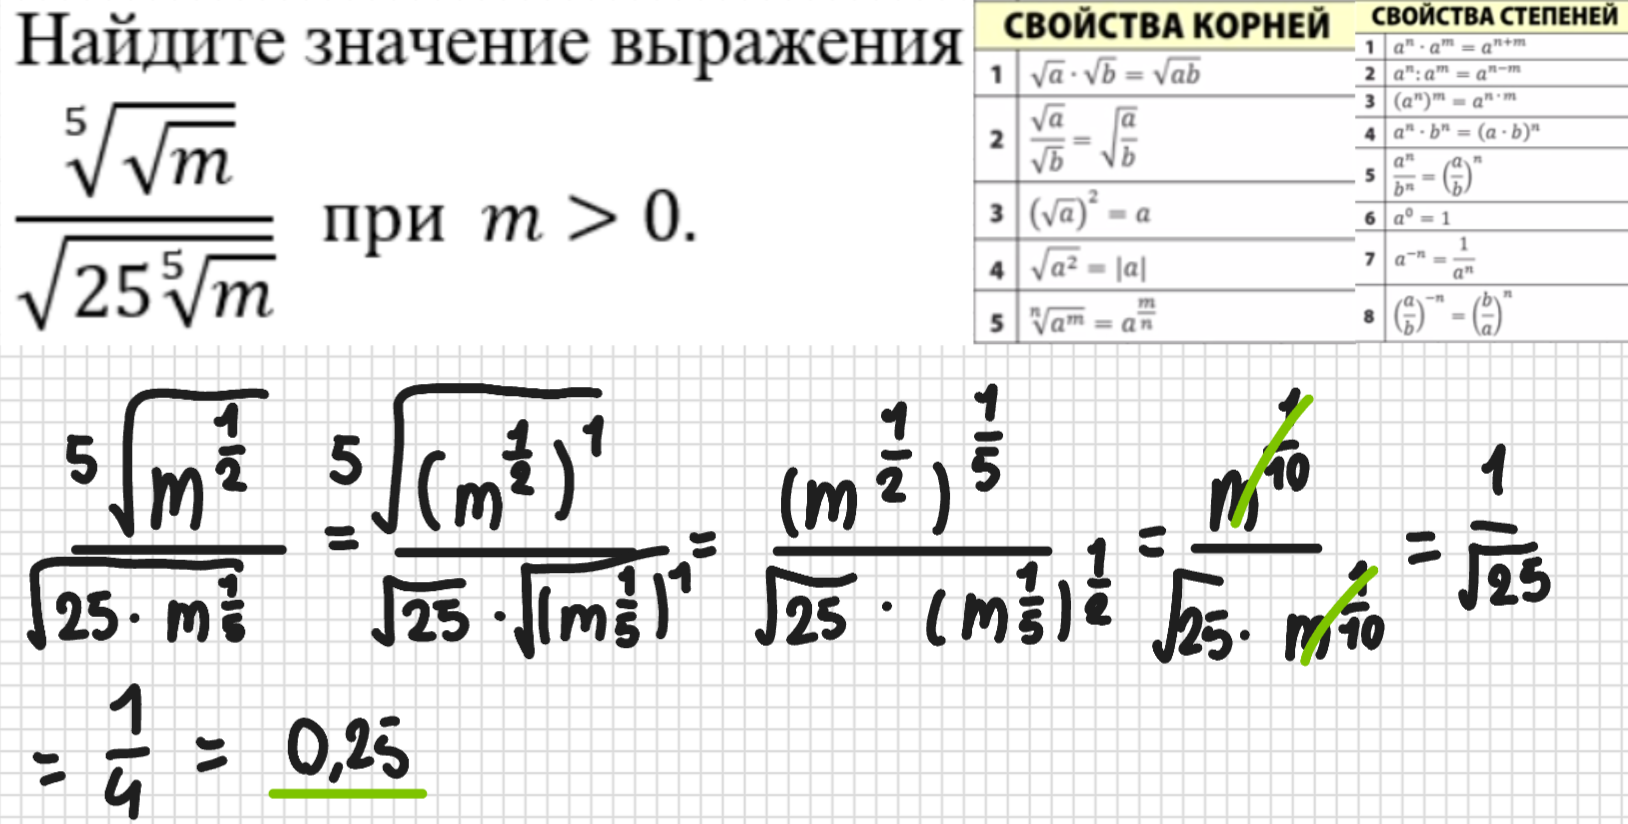 Найдите значение выражения
$\frac{\sqrt[5]{\sqrt{m}}}{\sqrt{25\sqrt[5]{m}}}$ при $m > 0.$
СВОЙСТВА КОРНЕЙ
1 $\sqrt{a} \cdot \sqrt{b} = \sqrt{ab}$
2 $\frac{\sqrt{a}}{\sqrt{b}} = \sqrt{\frac{a}{b}}$
3 $(\sqrt{a})^2 = a$
4 $\sqrt{a^2} = |a|$
5 $\sqrt[n]{a^m} = a^{\frac{m}{n}}$
СВОЙСТВА СТЕПЕНЕЙ
1 $a^n \cdot a^m = a^{n+m}$
2 $a^n : a^m = a^{n-m}$
3 $(a^n)^m = a^{n \cdot m}$
4 $a^n \cdot b^n = (a \cdot b)^n$
5 $\frac{a^n}{b^n} = \left(\frac{a}{b}\right)^n$
6 $a^0 = 1$
7 $a^{-n} = \frac{1}{a^n}$
8 $\left(\frac{a}{b}\right)^{-n} = \left(\frac{b}{a}\right)^n$
$\frac{\sqrt[5]{m^{\frac{1}{2}}}}{\sqrt{25 \cdot m^{\frac{1}{5}}}} = \frac{\sqrt[5]{(m^{\frac{1}{2}})^1}}{\sqrt{25} \cdot \sqrt{(m^{\frac{1}{5}})^1}} = \frac{(m^{\frac{1}{2}})^{\frac{1}{5}}}{\sqrt{25} \cdot (m^{\frac{1}{5}})^{\frac{1}{2}}} = \frac{m^{\frac{1}{10}}}{\sqrt{25} \cdot m^{\frac{1}{10}}} = \frac{1}{\sqrt{25}}$
$= \frac{1}{4} = 0,25$